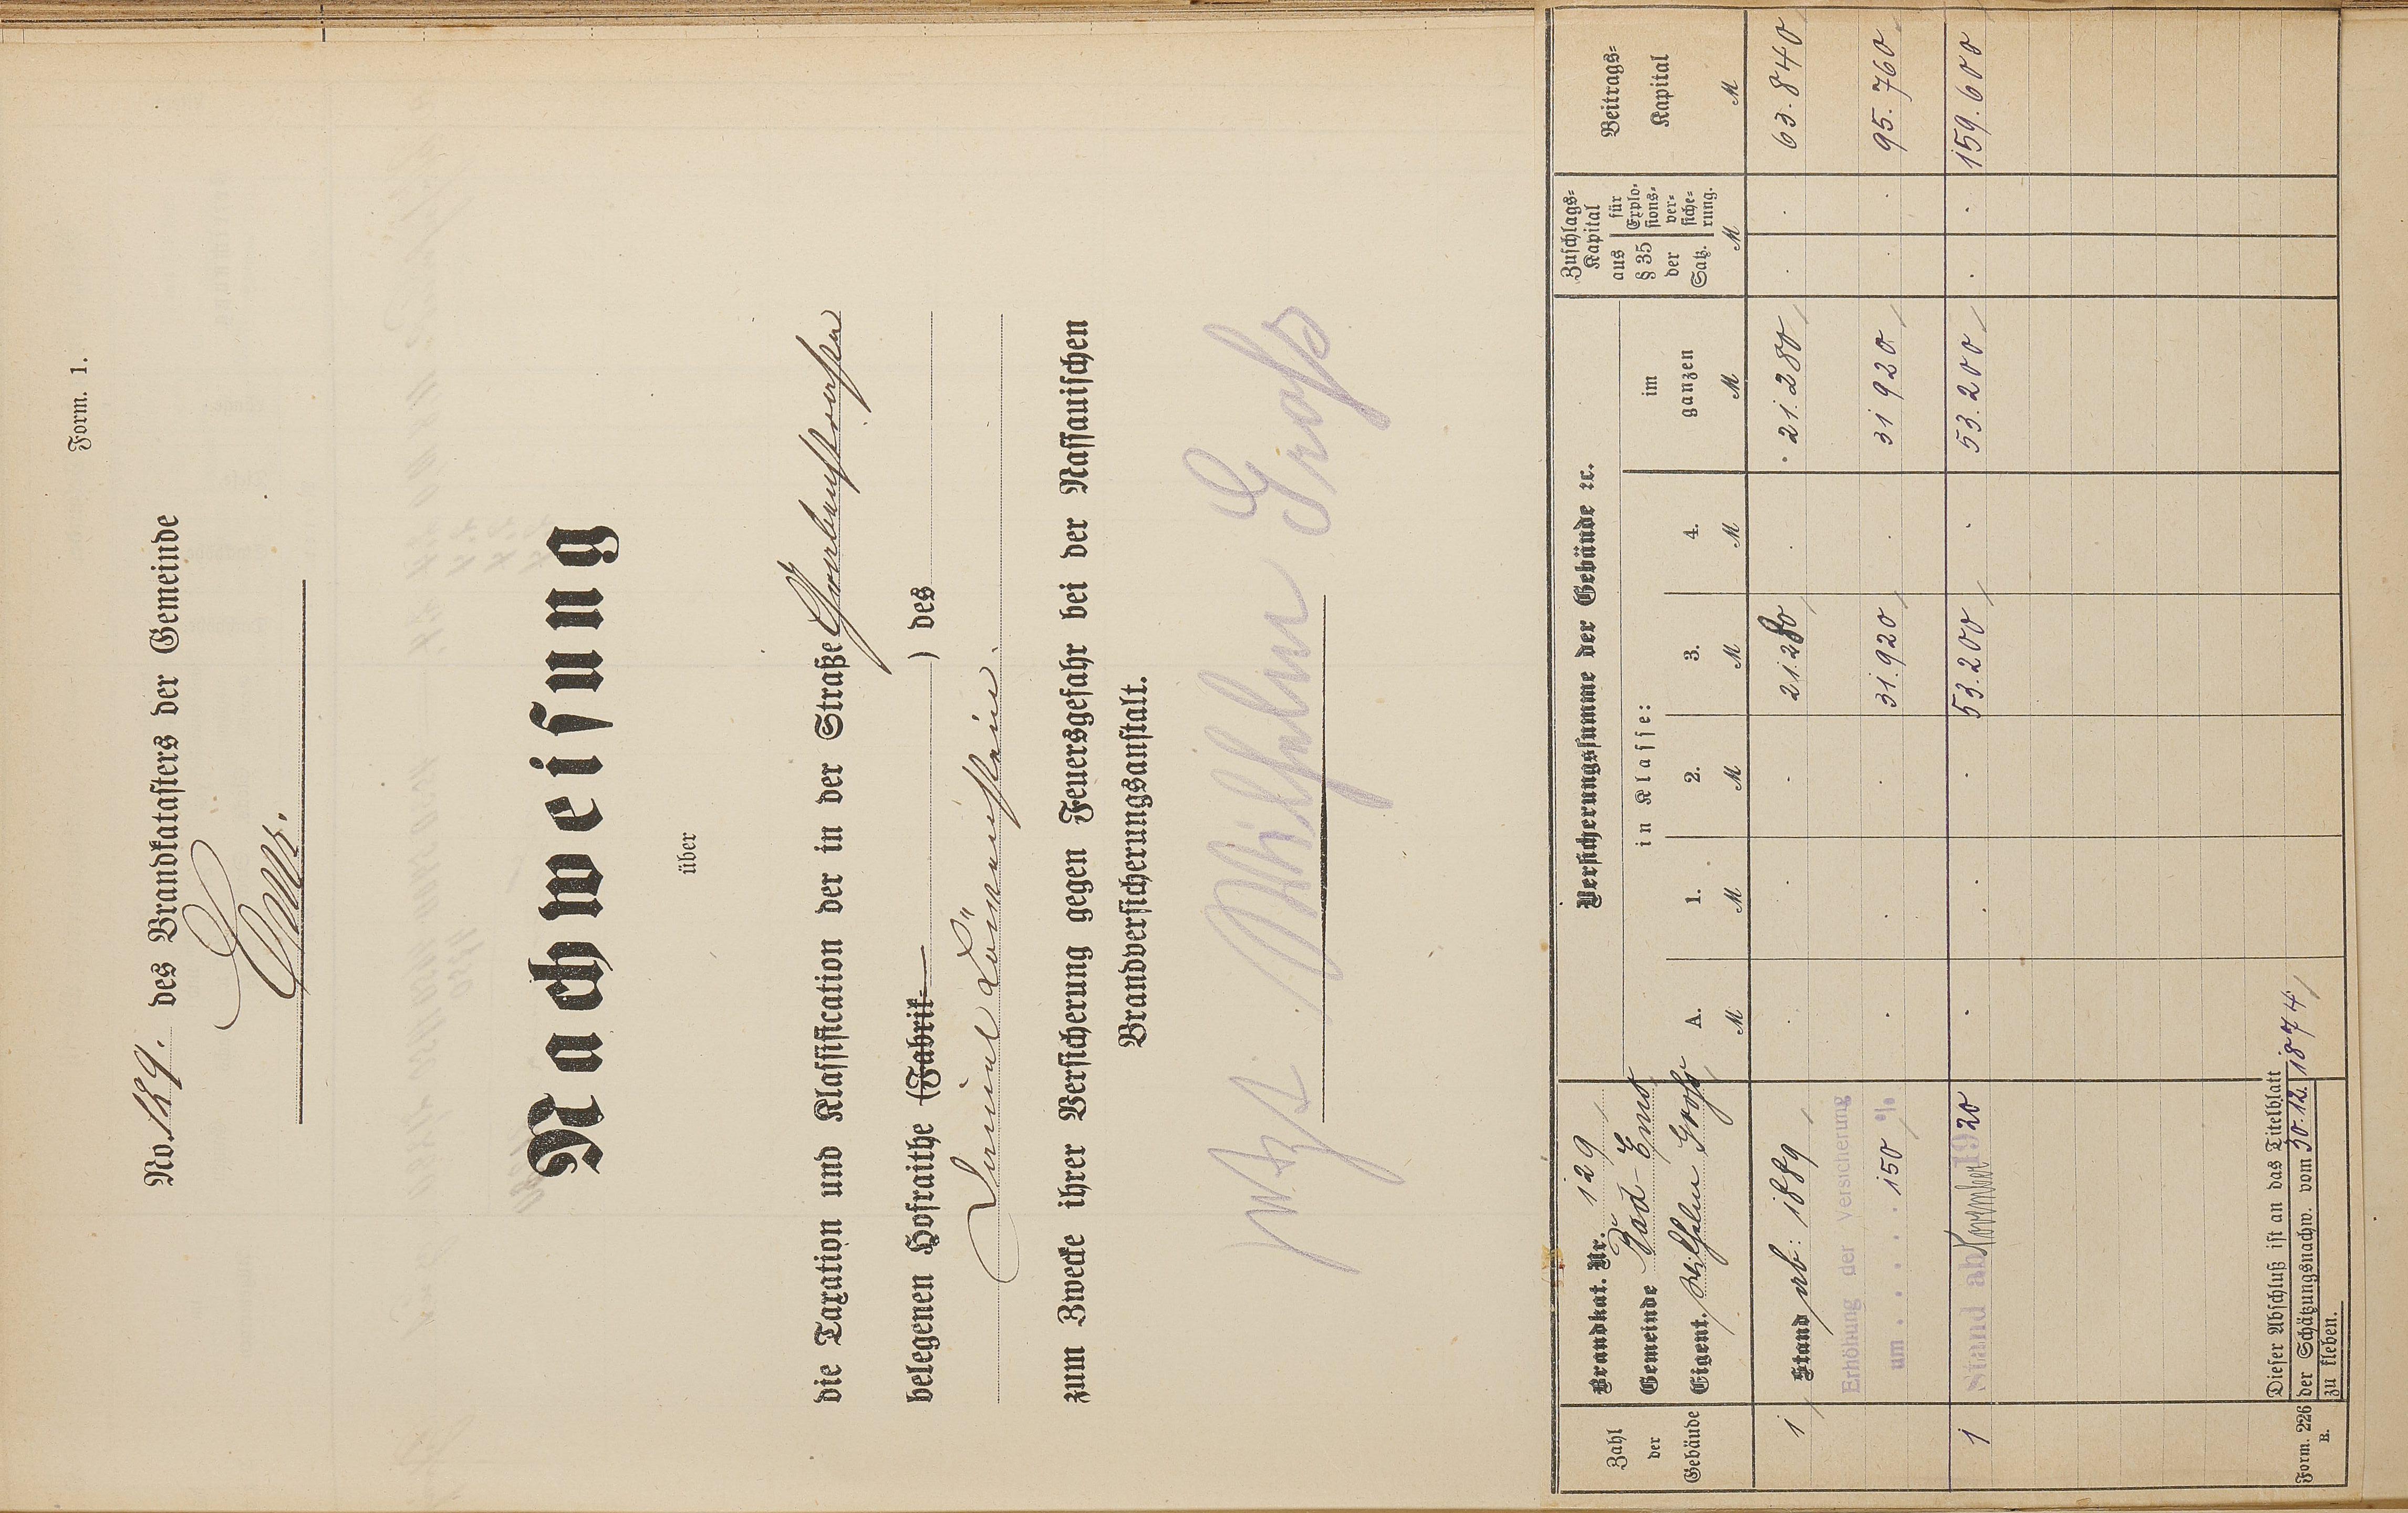 Form. 1.
No. 129. des Brandkatasters der Gemeinde
Ems.
Nachweisung
über
die Taxation und Klassification der in der Straße
belegenen Hofraithe (Fabrik- ) des
Löwenstein.
zum Zwecke ihrer Versicherung gegen Feuersgefahr bei der Nassauischen
Brandversicherungsanstalt.
jetzt Wilhelm Groß
Zahl der Gebäude
Brandkat. Nr. 129
Gemeinde Bad-Ems
Eigent. Wilhelm Groß
Versicherungssumme der Gebäude ꝛc.
in Klasse:
A. 1. 2. 3. 4. im ganzen
M M M M M M
Zuschlags-Kapital
aus § 35 der Satz. für Explosions-versicherung.
M
Beitrags-Kapital
M
1 Stand urb: 1889 . . . 21.280 . 21.280 . . 63.840
Erhöhung der Versicherung
um . . . . . 150 % . . . 31.920 . 31 920 . . 95.760
1 Stand ab November 1920 . . . 53.200 . 53.200 . . 159.600
Dieser Abschluß ist an das Titelblatt
Form. 226 B. der Schätzungsnachw. vom 30.12.1874
zu kleben.